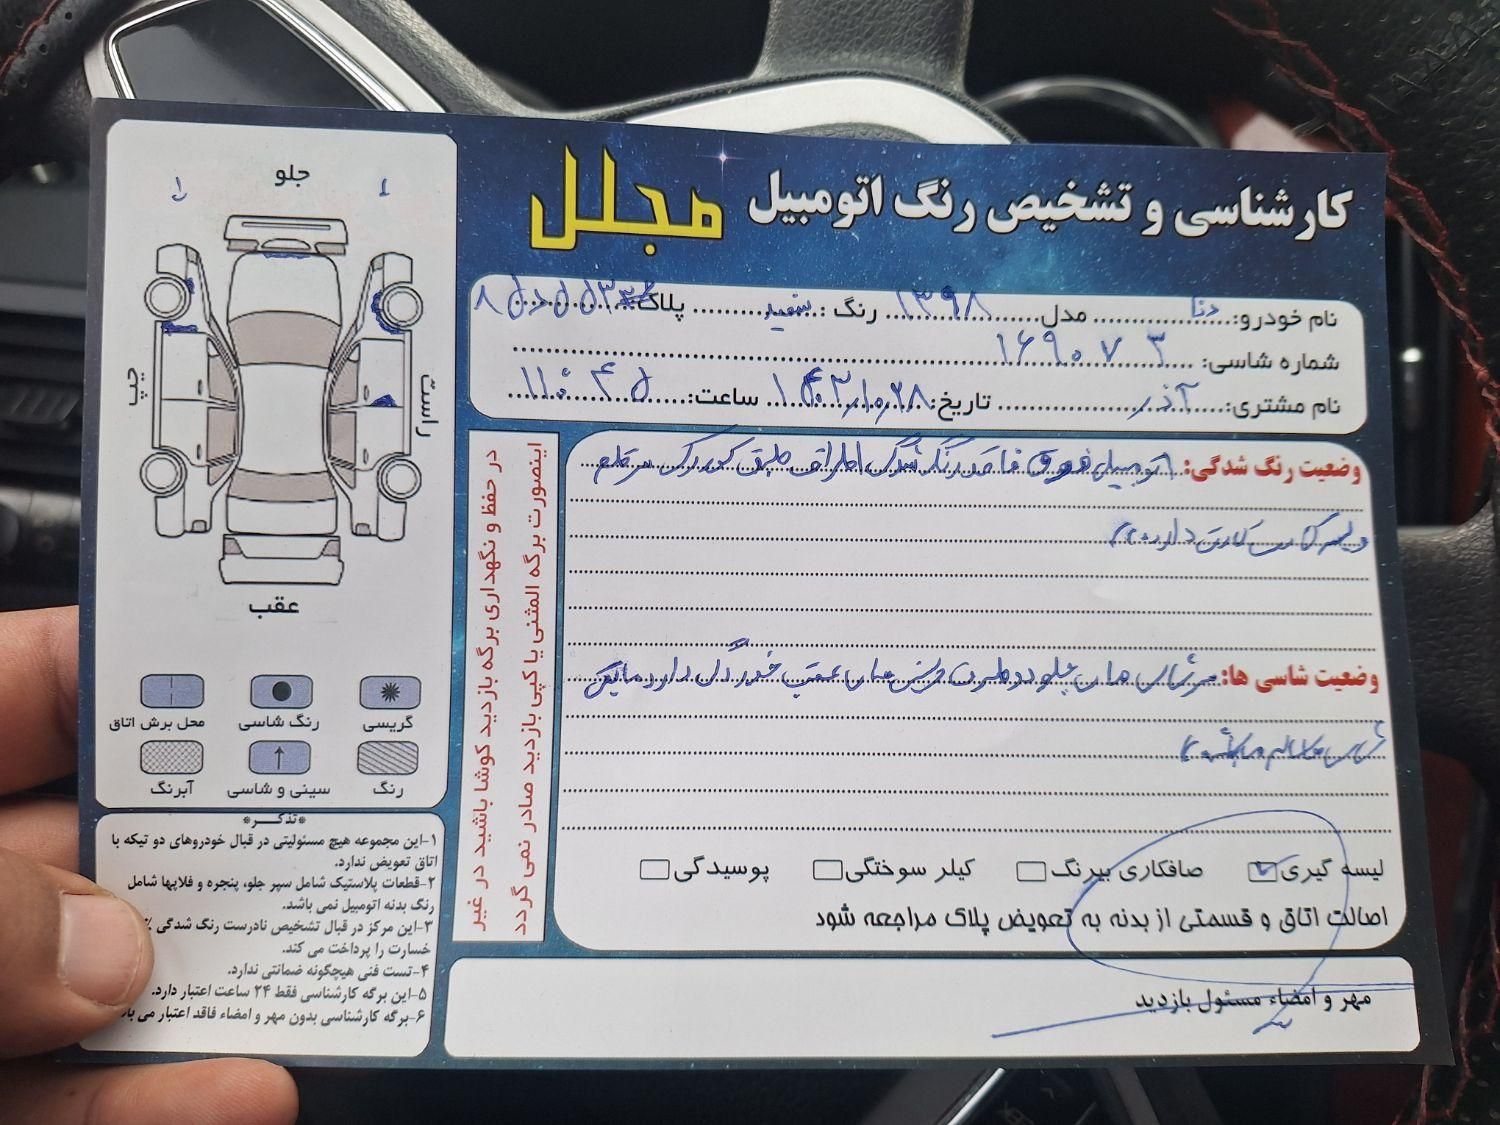 کارشناسی و تشخیص رنگ اتومبیل مجلل
نام خودرو: دنا مدل ۱۳۹۸ رنگ: سفید پلاک
شماره شاسی: ۱۶۹۰۷۳
نام مشتری: آذر تاریخ: ۱۴۰۲/۱۰/۲۸ ساعت: ۱۱:۴۵
وضعیت رنگ شدگی: اتومبیل فوق فاقد رنگ شدگی اطراف
دارد
وضعیت شاسی ها: سرشاسی های جلو دو طرف های عقب خوردگی دارد مابقی
شاسی ها سالم میباشد
لیسه گیری صافکاری بیرنگ کیلر سوختگی پوسیدگی
اصالت اتاق و قسمتی از بدنه به تعویض پلاک مراجعه شود
مهر و امضاء مسئول بازدید
در حفظ و نگهداری برگه بازدید کوشا باشید در غیر
اینصورت برگه المثنی یا کپی بازدید صادر نمی گردد
جلو
چپ
راست
عقب
گریسی رنگ شاسی محل برش اتاق
رنگ سینی و شاسی آبرنگ
*تذکر*
۱-این مجموعه هیچ مسئولیتی در قبال خودروهای دو تیکه با
اتاق تعویض ندارد.
۲-قطعات پلاستیک شامل سپر جلو، پنجره و فلاپها شامل
رنگ بدنه اتومبیل نمی باشد.
۳-این مرکز در قبال تشخیص نادرست رنگ شدگی
خسارت را پرداخت می کند.
۴-تست فنی هیچگونه ضمانتی ندارد.
۵-این برگه کارشناسی فقط ۲۴ ساعت اعتبار دارد.
۶-برگه کارشناسی بدون مهر و امضاء فاقد اعتبار می